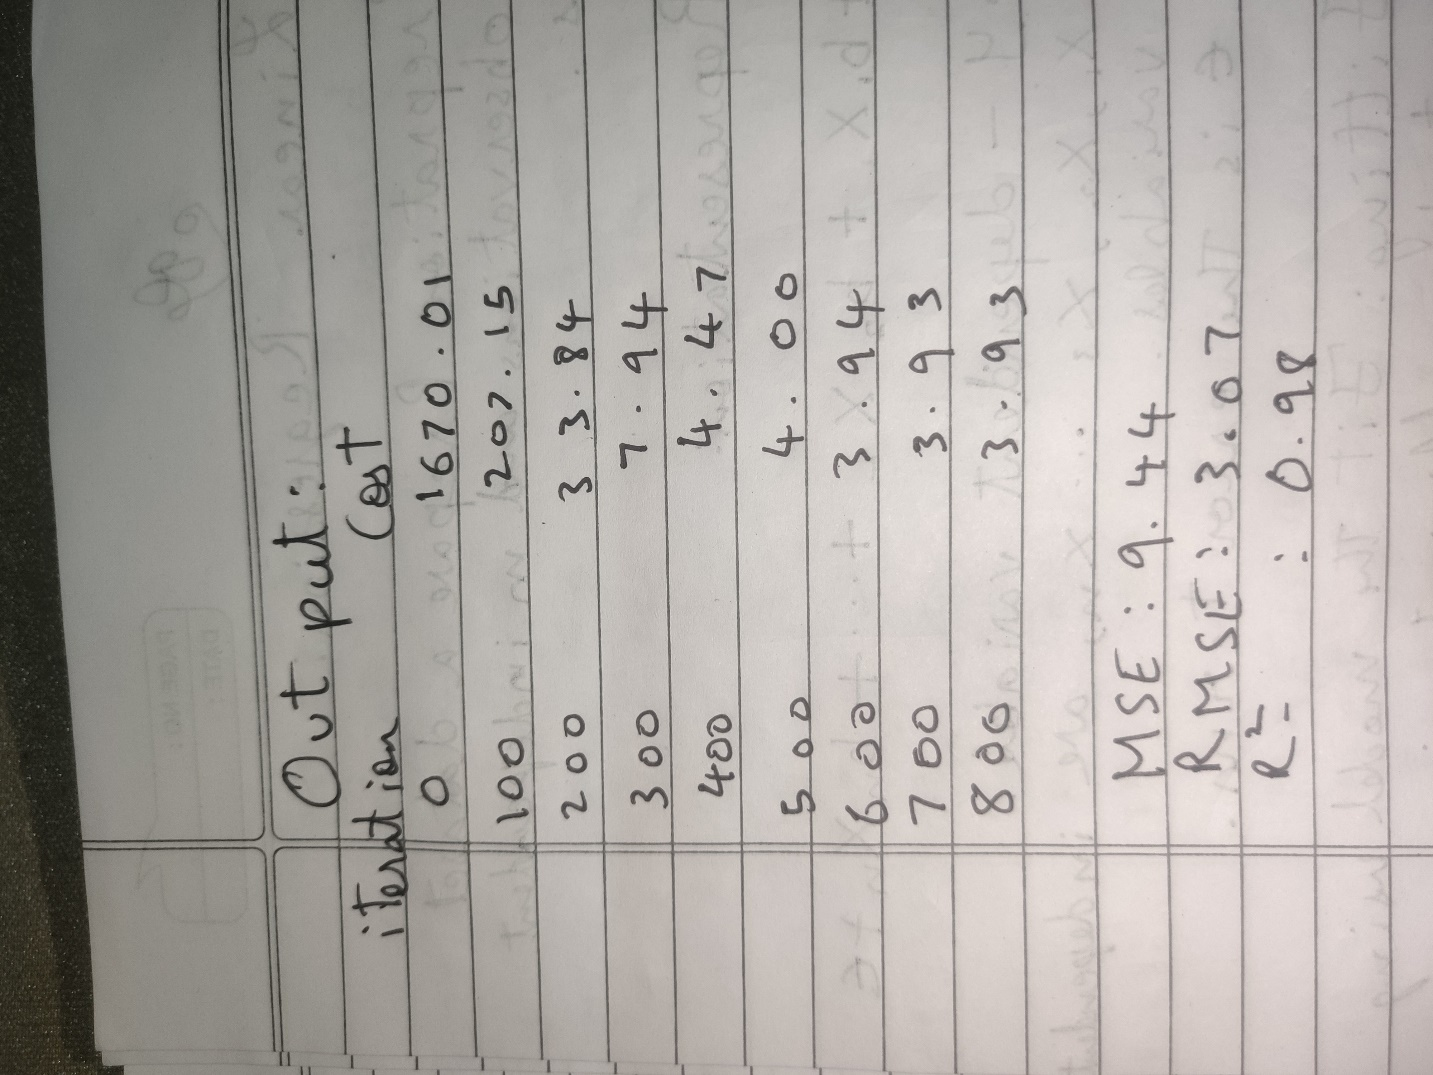 Output:
iteration Cost
0 1670.01
100 207.15
200 33.84
300 7.94
400 4.47
500 4.00
600 3.94
700 3.93
800 3.93
MSE: 9.44
RMSE: 3.07
R² : 0.98